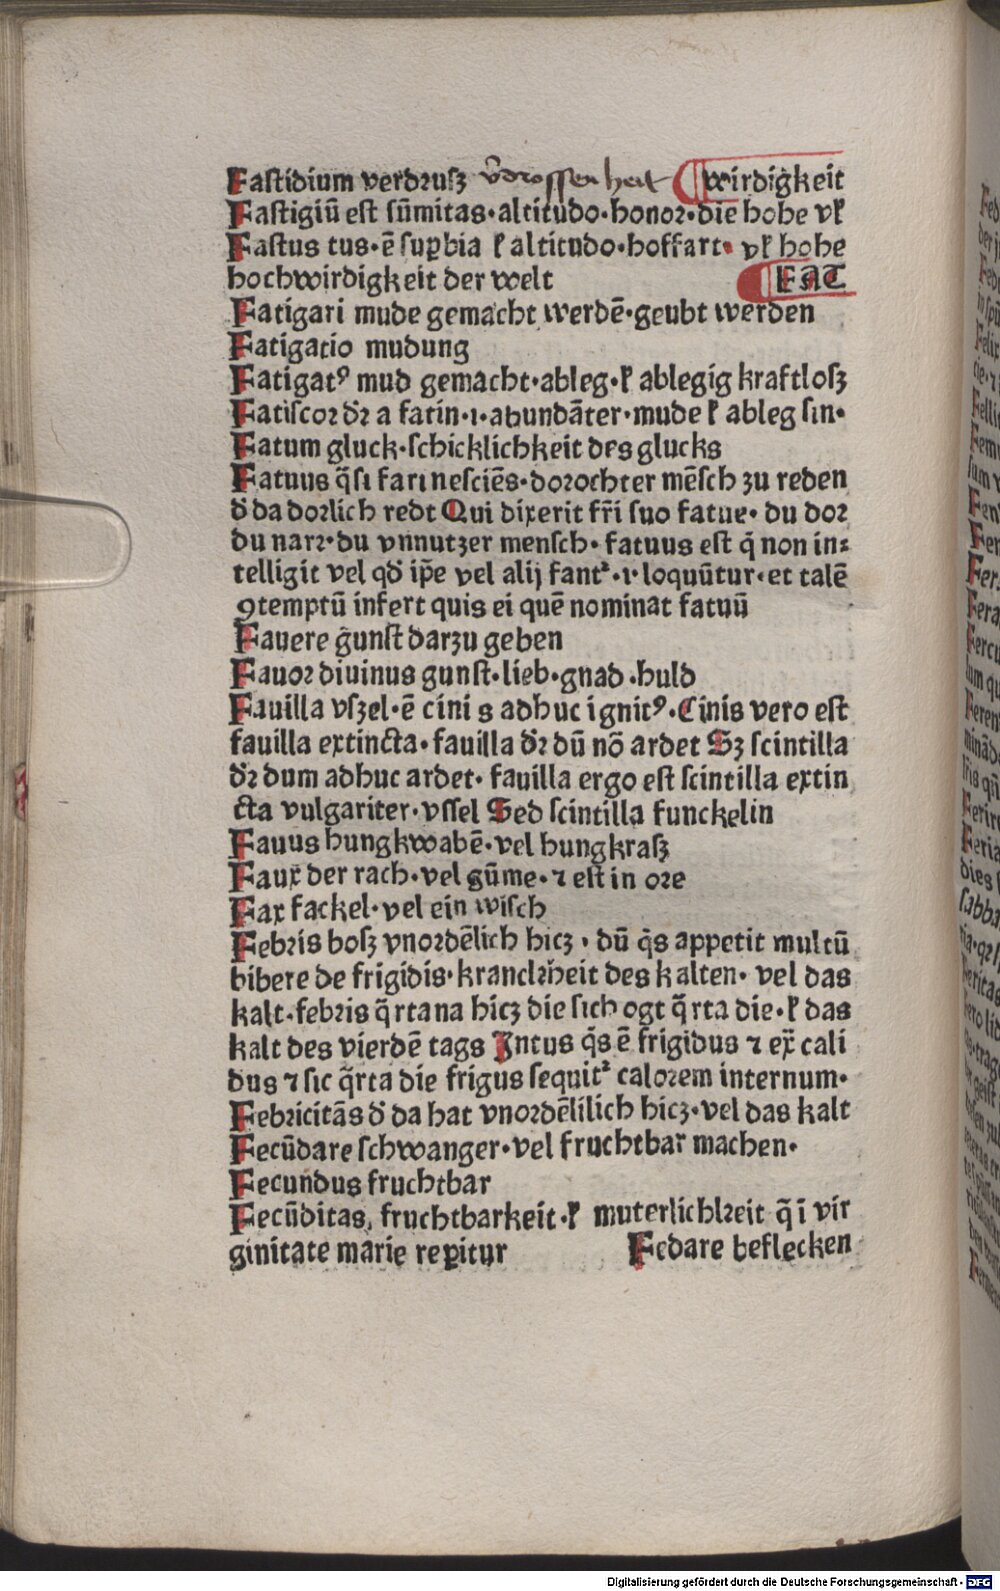 Fastidium verdꝛusz v̄drossenheit wirdigkeit
Fastigiū est sūmitas·altitudo·honoꝛ·die hohe vł
Fastus tus·ē supbia ł altitudo·hoffart· vł hohe
hochwirdigkeit der welt FAT
Fatigari mude gemacht werdē·geubt werden
Fatigatio mudung
Fatigatꝰ mud gemacht·ableg·ł ablegig kraftlosz
Fatiscoꝛ dr̄ a fatin·i·abundāter·mude ł ableg sin·
Fatum gluck·schicklichkeit des glucks
Fatuus q̄si fari nesciēs·dorochter mēsch zu reden
d̄ da dorlich redt Qui dixerit fr̄i suo fatue· du dor
du narr·du vnnutzer mensch· fatuus est q̄ non in⸗
telligit vel qd̄ ip̄e vel alij fantᷣ·ı·loquūtur·et talē
ꝯtemptū infert quis ei quē nominat fatuū
Fauere gunst darzu geben
Fauoꝛ diuinus gunst·lieb·gnad·huld
Fauilla vszel·ē cinis adhuc ignitꝰ·Cinis vero est
fauilla extincta·fauilla dr̄ dū nō ardet Sz scintilla
dr̄ dum adhuc ardet· fauilla ergo est scintilla extin
cta vulgariter·vssel Sed scintilla funckelin
Fauus hungkwabē·vel hungkrasz
Faux der rach·vel gūme·⁊ est in ore
Fax fackel·vel ein wisch
Febꝛis bosz vnoꝛdēlich hicz·dū q̄s appetit multū
bibere de frigidis·kranckheit des kalten· vel das
kalt·febꝛis q̄rtana hicz die sich ogt q̄rta die·ł das
kalt des vierdē tags Intus q̄s ē frigidus ⁊ ex̄ cali
dus ⁊ sic q̄rta die frigus sequitᷣ caloꝛem internum·
Febꝛicitās d̄ da hat vnoꝛdēlilich hicz·vel das kalt
Fecūdare schwanger·vel fruchtbar machen·
Fecundus fruchtbar
Fecūditas, fruchtbarkeit·ł muterlichkeit q̄ ī vir
ginitate marie repitur Fedare beflecken
Digitalisierung gefördert durch die Deutsche Forschungsgemeinschaft - DFG